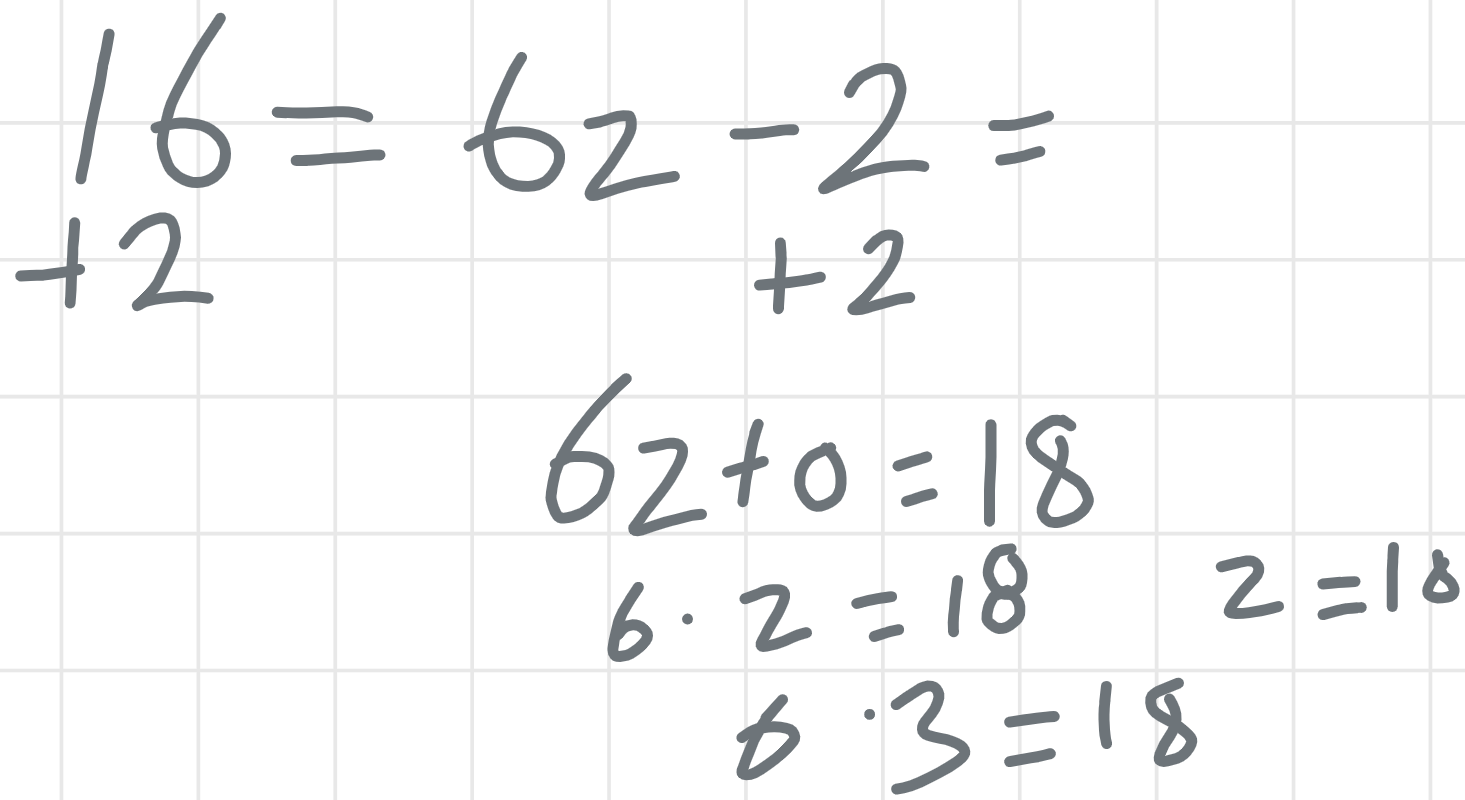 16 = 6z - 2 =
+2 +2
6z + 0 = 18
6 · z = 18 z = 18
6 · 3 = 18